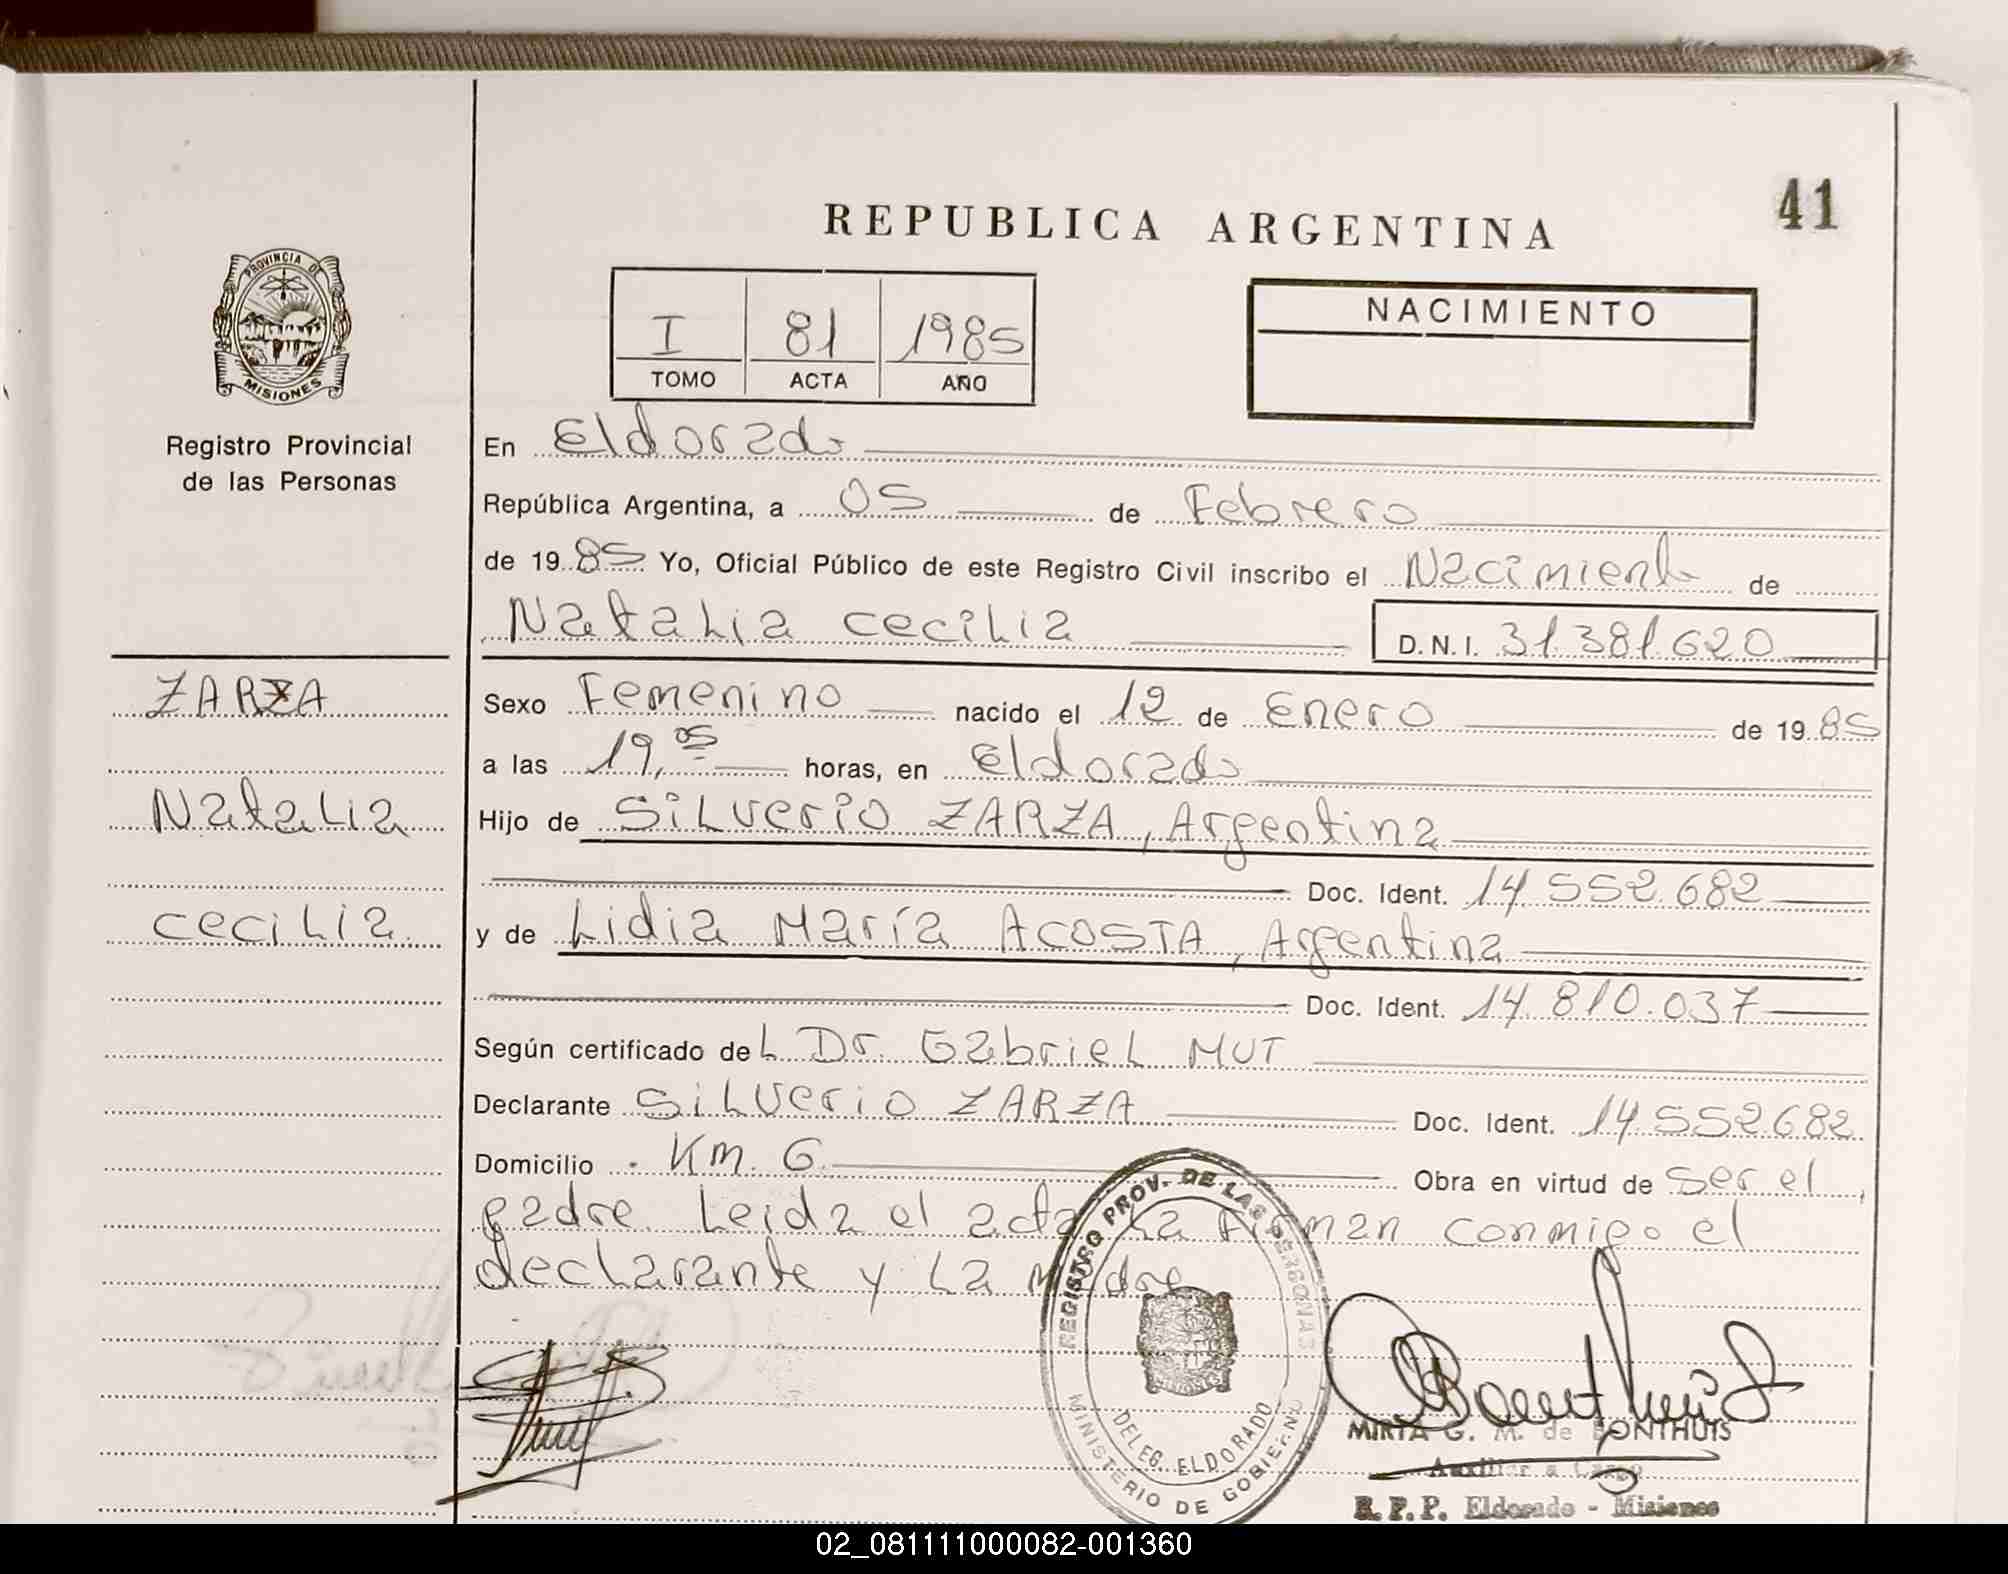 41
REPUBLICA ARGENTINA
PROVINCIA DE
MISIONES
I 81 1985
TOMO ACTA AÑO
NACIMIENTO
Registro Provincial
de las Personas
En Eldorado
República Argentina, a 05 de Febrero
de 1985 Yo, Oficial Público de este Registro Civil inscribo el Nacimiento de
Natalia Cecilia D.N.I. 31.381.620
ZARZA
Natalia
Cecilia
Sexo Femenino nacido el 12 de Enero de 1985
a las 19,05 horas, en Eldorado
Hijo de Silverio ZARZA, Argentina
Doc. Ident. 14.552.682
y de Lidia María ACOSTA, Argentina
Doc. Ident. 14.810.037
Según certificado del Dr. Gabriel MUT
Declarante Silverio ZARZA Doc. Ident. 14.552.682
Domicilio Km. 6 Obra en virtud de ser el
padre. Leida el acta la firman conmigo el
declarante y la madre
REGISTRO PROV. DE LAS PERSONAS
DELEG. ELDORADO
MINISTERIO DE GOBIERNO
MIRTA G. M. de BONTHUIS
Auxiliar a Cargo
R. P. P. Eldorado - Misiones
02_081111000082-001360